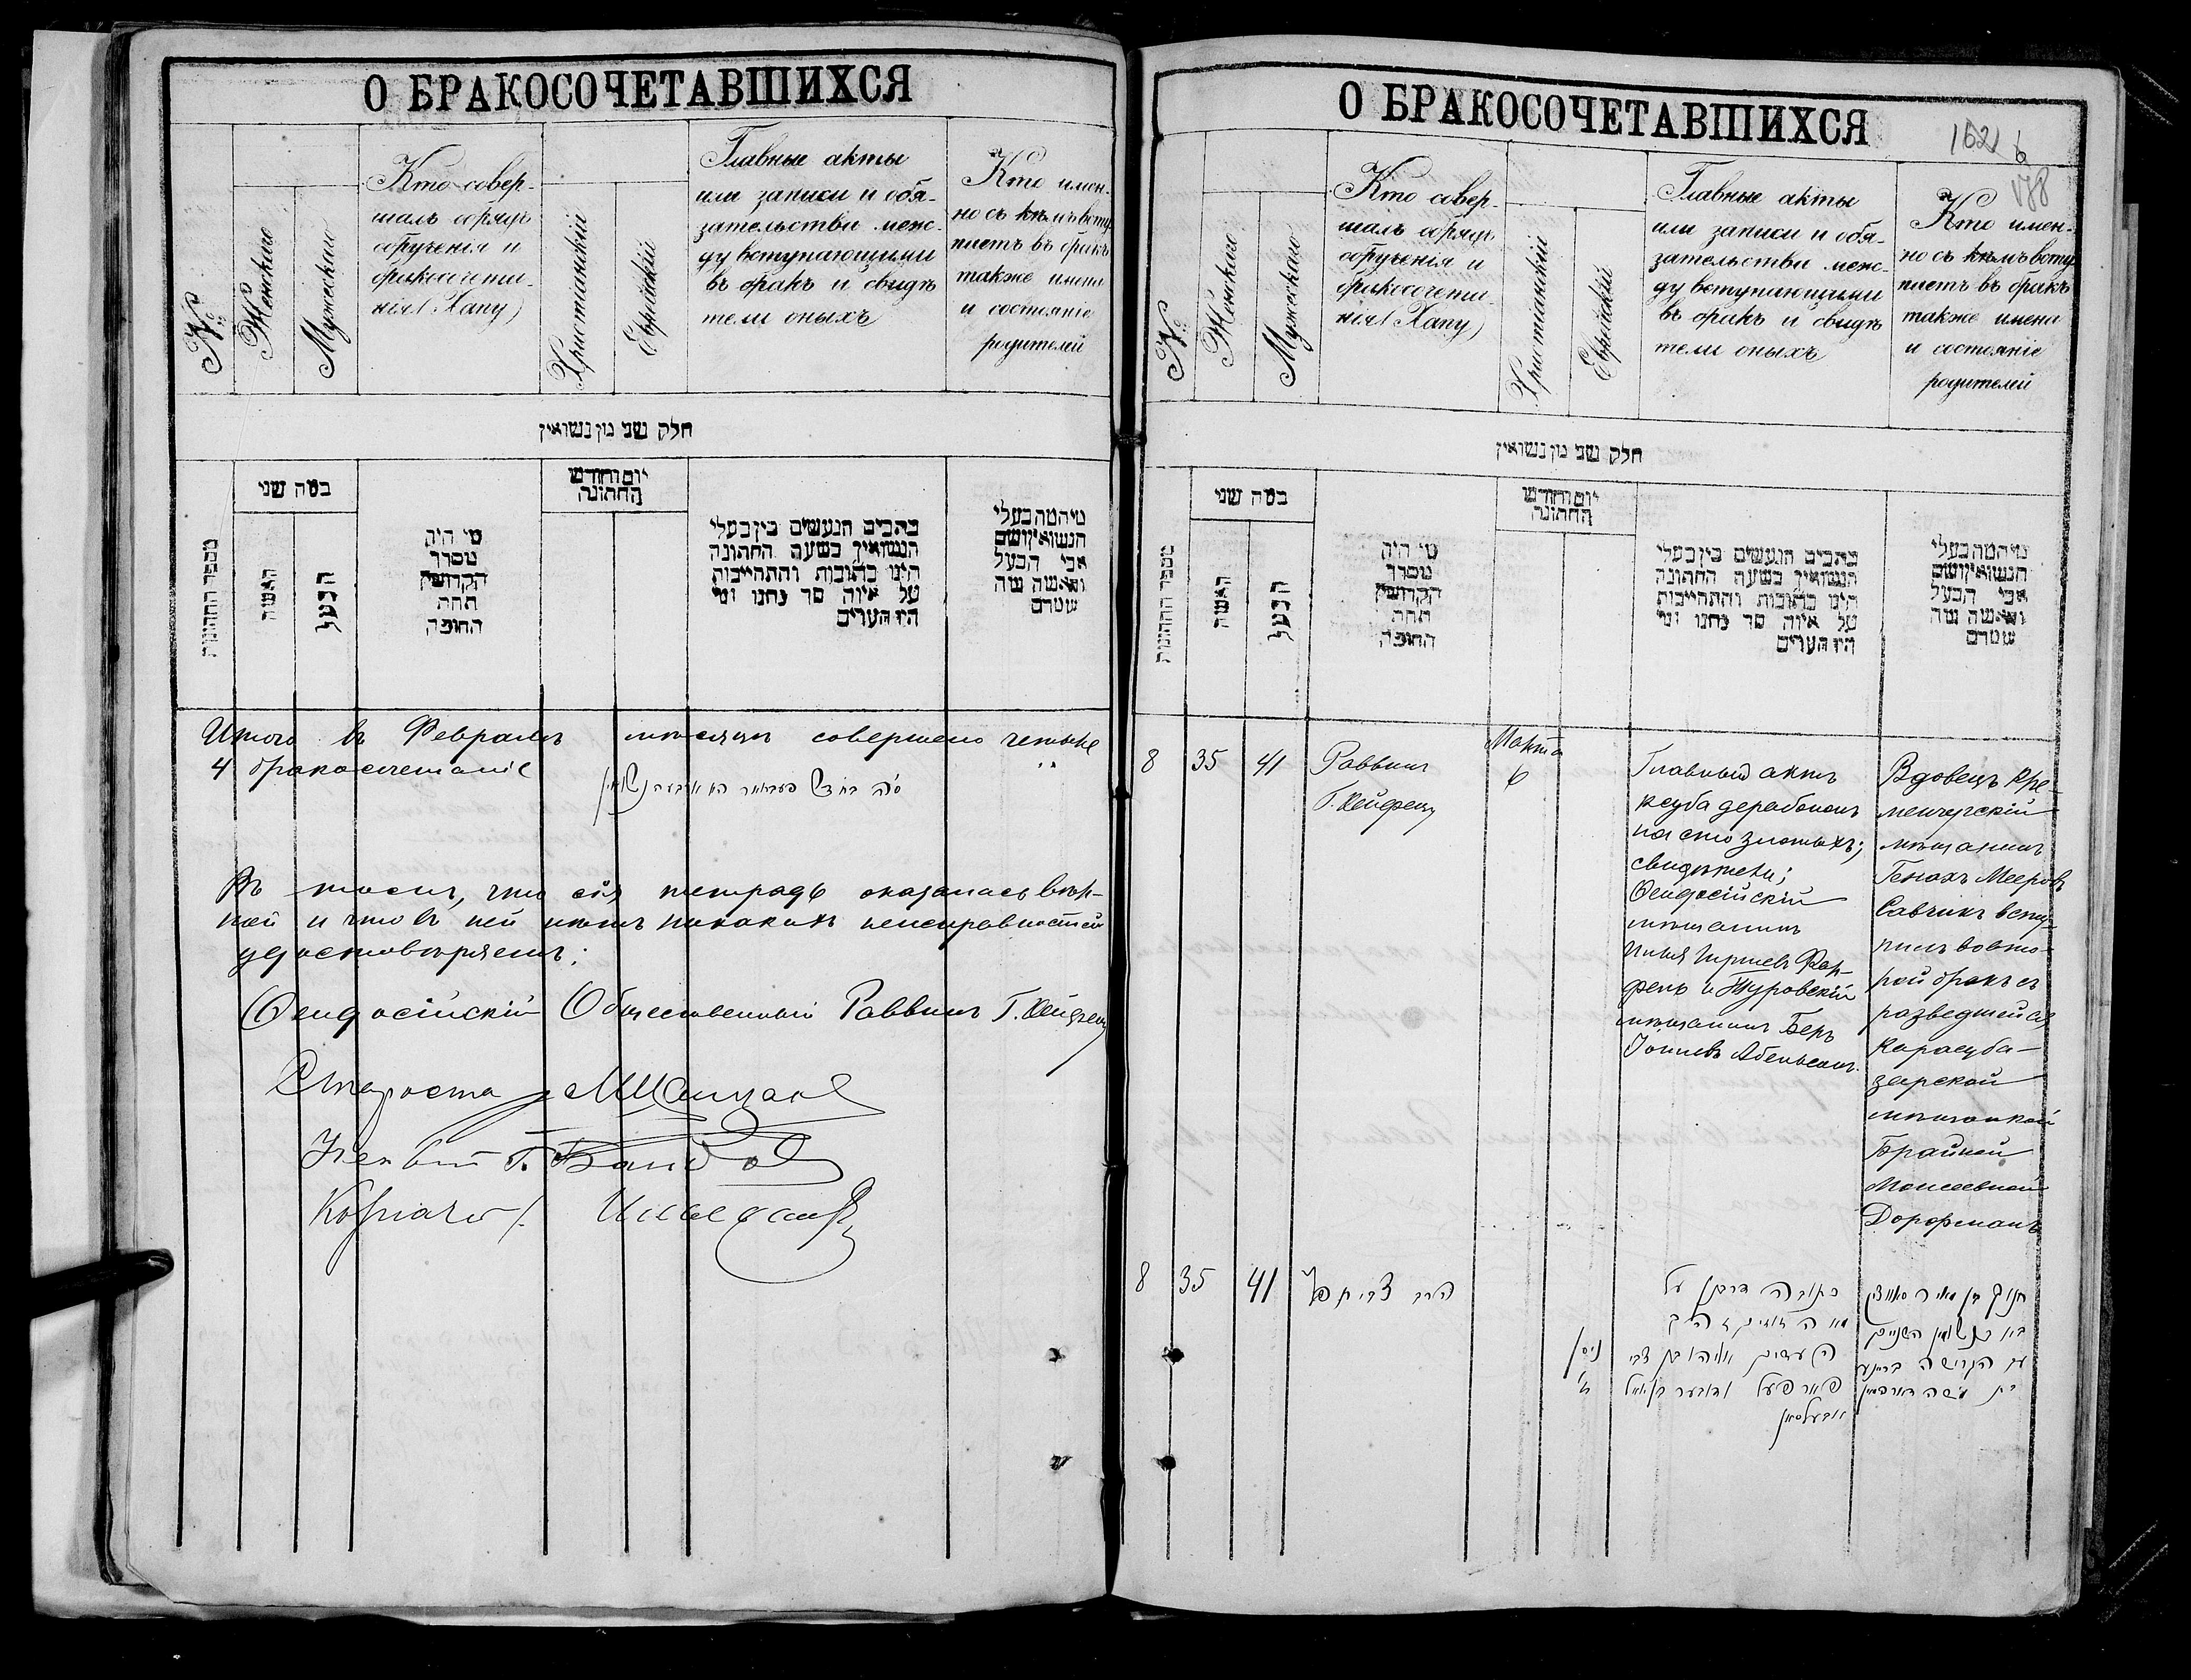 О БРАКОСОЧЕТАВШИХСЯ
№
Женскаго
Мужескаго
Кто совер-
шалъ обрядъ
обрученія и
бракосочета-
нія (Хапу)
Христіанскій
Еврейскій
Главные акты
или записи и обя-
зательства меж-
ду вступающими
въ бракъ и свидѣ
тели оныхъ
Кто имен-
но съ кѣмъ всту
паетъ въ бракъ
также имена
и состояніе
родителей
חלק שני מן נשואין
מספר החתונות
במה שני
האשה
הבעל
מי היה
מסדר
הקדושין
תחת
החופה
יום וחודש
החתונה
כתבים הנעשים בין בעלי
הנשואין בשעה החתונה
היינו כתובות והתחייבות
על איזה סך נתנו ומי
היו העדים
מי המה בעלי
הנשואין ושם
אבי הבעל
והאשה ומה
שמם
Итого въ Февралѣ мѣсяцѣ совершено четыре
4 бракосочетаніе
Въ томъ, что сія тетрадь оказалась вѣр-
ной и что въ ней нѣтъ никакихъ неисправностей
удостовѣряемъ:
Ѳеодосійскій Общественный Раввинъ Г. Хейфецъ
Староста
О БРАКОСОЧЕТАВШИХСЯ
№
Женскаго
Мужескаго
Кто совер-
шалъ обрядъ
обрученія и
бракосочета-
нія (Хапу)
Христіанскій
Еврейскій
Главные акты
или записи и обя-
зательства меж-
ду вступающими
въ бракъ и свидѣ
тели оныхъ
Кто имен-
но съ кѣмъ всту
паетъ въ бракъ
также имена
и состояніе
родителей
חלק שני מן נשואין
מספר החתונות
במה שני
האשה
הבעל
מי היה
מסדר
הקדושין
תחת
החופה
יום וחודש
החתונה
כתבים הנעשים בין בעלי
הנשואין בשעה החתונה
היינו כתובות והתחייבות
על איזה סך נתנו ומי
היו העדים
מי המה בעלי
הנשואין ושם
אבי הבעל
והאשה ומה
שמם
8 35 41
Раввинъ
Г. Хейфецъ
Марта
6
Главный актъ
ксуба дерабонанъ
на сто злотыхъ;
свидѣтели:
Ѳеодосійскій
мѣщанинъ
Гиршевъ Фар-
фель и Туровскій
мѣщанинъ Беръ
Абельсонъ.
Вдовецъ Кре-
менчугскій
мѣщанинъ
Генохъ Мееровъ
Савчинъ всту-
пилъ во вто-
рой бракъ съ
разведшейся
Карасуба-
зарской
мѣщанкой
Брайной
Моисеевной
Дорфманъ
8 35 41
הרב
ניסן
כתובה דרבנן על
חנוך בן מאיר
בא בנשואין השניים
עם הגרושה בריינע
בת משה דארפמאן